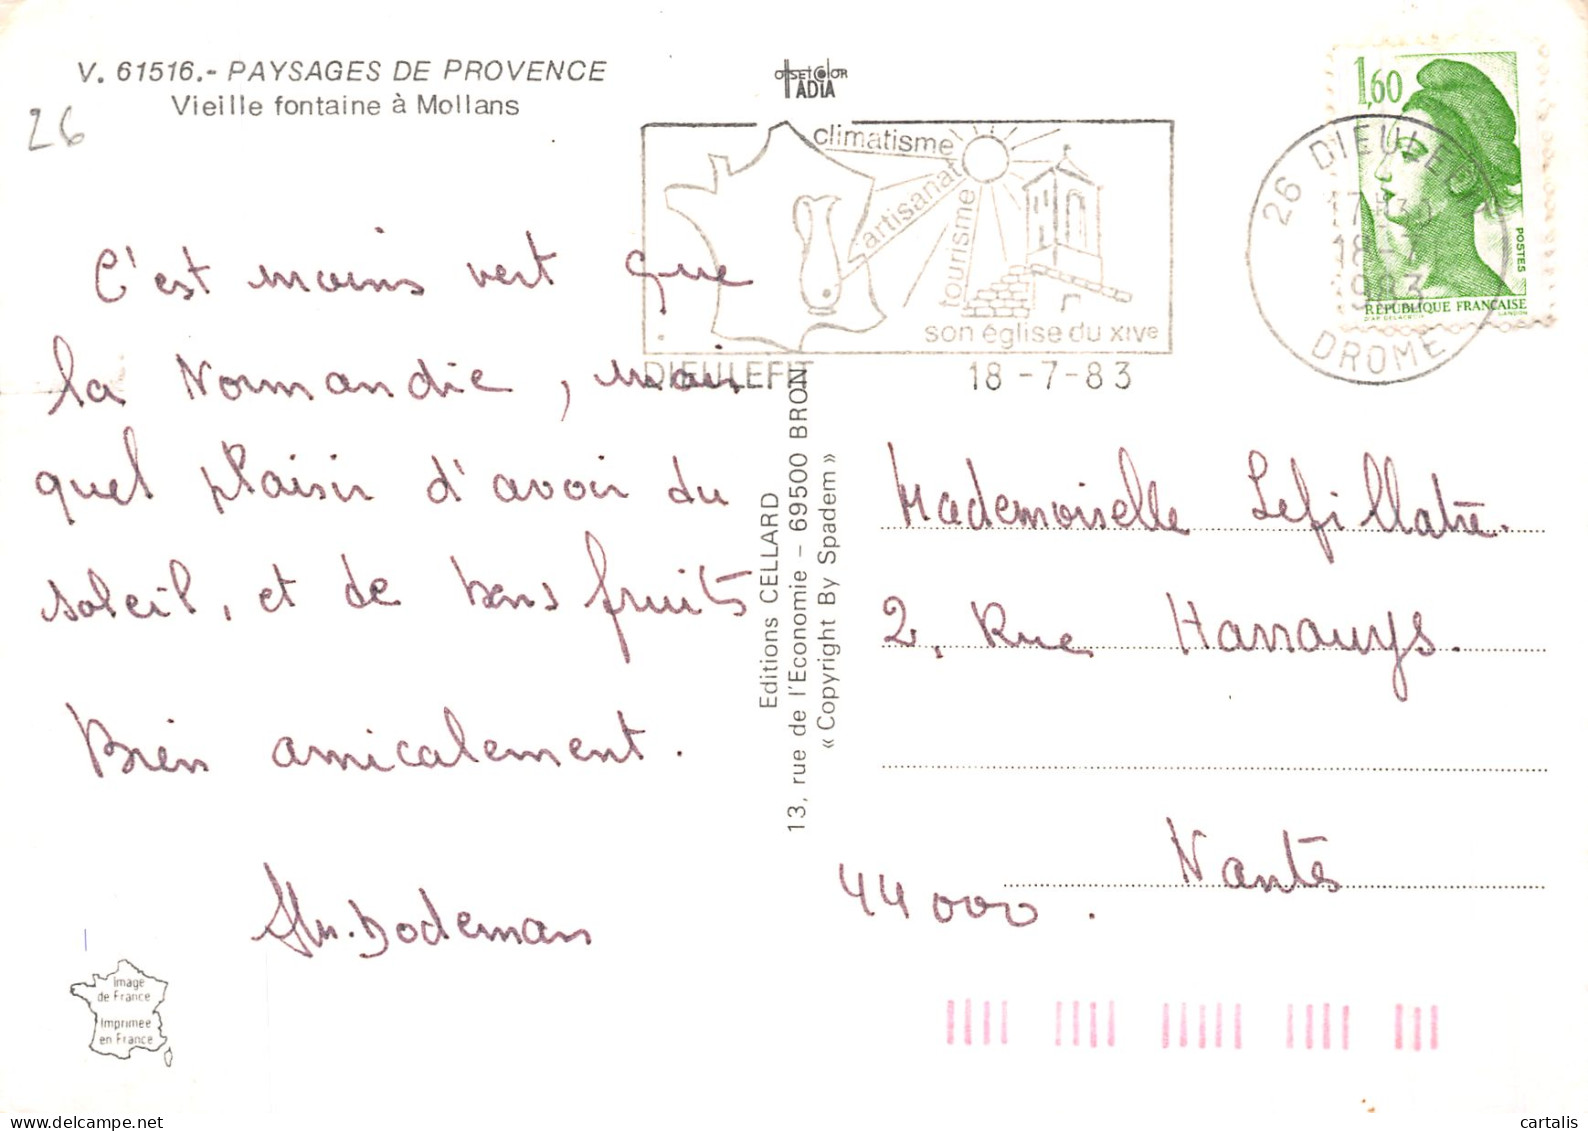 V. 61516.- PAYSAGES DE PROVENCE
Vieille fontaine à Mollans
26
OFFSETCOLOR
IADIA
C'est moins vert que
la Normandie, mais
quel plaisir d'avoir du
soleil, et de bons fruits
Bien amicalement.
Dodeman
Image
de France
Imprimée
en France
Editions CELLARD
13, rue de l'Economie – 69500 BRON
« Copyright By Spadem »
climatisme
artisanat
tourisme
son église du XIVe
DIEULEFIT
18-7-83
26 DIEULEF
17H30
18-7
1983
DROME
1,60
POSTES
RÉPUBLIQUE FRANÇAISE
D'AP. DELACROIX
GANDON
Mademoiselle Lefillatre.
2, Rue Harrouys.
44000. Nantes
cartalis
delcampe.net